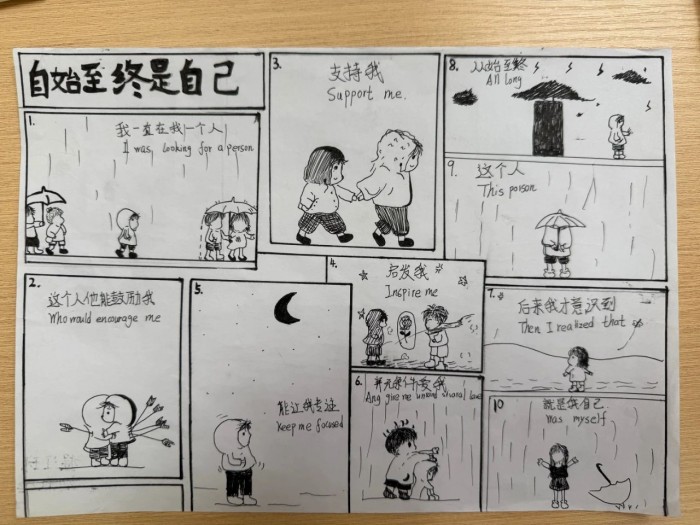 自始至终是自己
1.
我一直在找一个人
I was, Looking for a person
2.
这个人他能鼓励我
Who would encourage me
3.
支持我
Support me.
4.
启发我
Inspire me
5.
能让我专注
keep me focused
6.
并无条件爱我
Ang give me love
7.
后来我才意识到
Then I realized that
8.
从始至终
All long
9.
这个人
This
10
就是我自己
Was myself